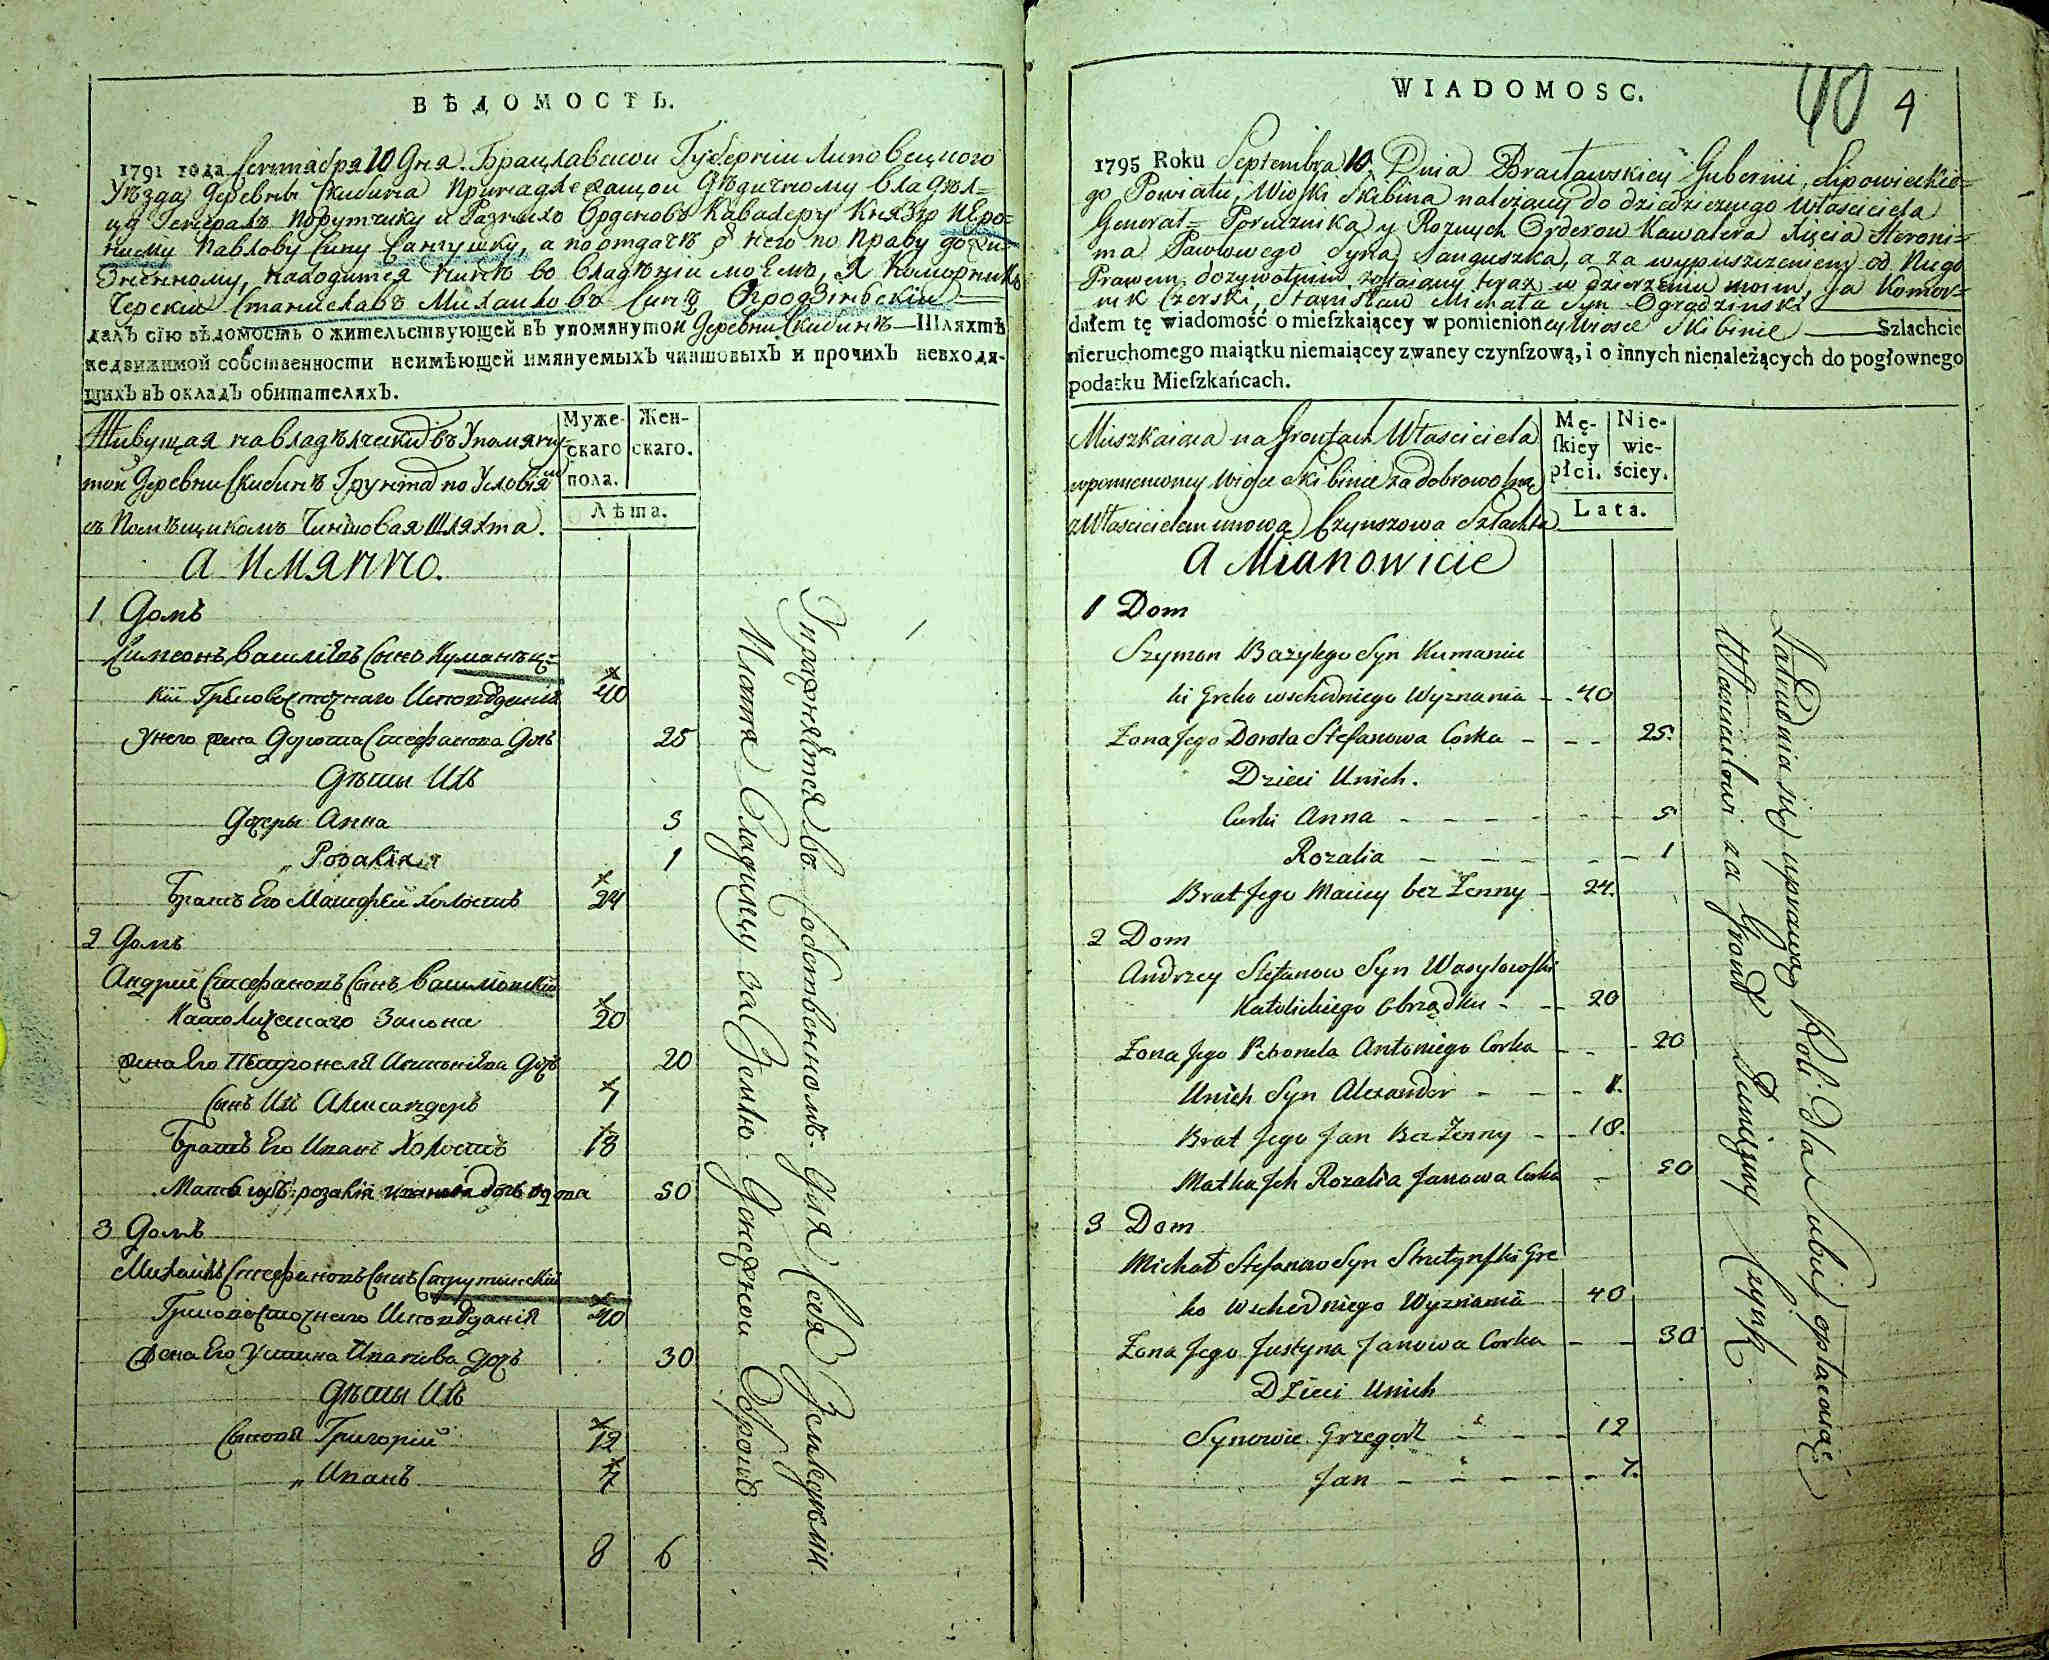 ВѢДОМОСТЬ.
1791 года Сентября 10 Дня Брацлавской Губернии Липовецкого
Уѣзда Деревни Скибина Принадлежащой Дѣдичному владѣл=
цу Генералъ Порутчику и Разныхъ Орденовъ Кавалеру Князю Иеро=
ниму Павлову Сину Сангушку, а по отдачѣ от него по праву дожи=
зненному, находится нинѣ во владѣнiи моемъ, Я Коморникъ
Черски Станиславъ Михаиловъ Синъ Огродзѣнски
далъ сiю вѣдомость о жительствующей въ упомянутой Деревни Скибинѣ — Шляхтѣ
недвижимой собственности неимѣющей имянуемыхъ чиншовыхъ и прочихъ невходя-
щихъ въ окладъ обитателяхъ.
Живущая на владѣлческихъ въ Упомяну-
той Деревни Скибинѣ Грунтахъ по Условiям
съ Помѣщикомъ Чиншовая Шляхта.
Муже-
скаго
пола.
Жен-
скаго.
Лѣта.
А Имянно.
1 Домъ
Симеонъ Василiевъ Сынъ Куманѣц=
кiй Грековосточнаго Исповѣданiя 40
У него жена Дорота Стефанова Дочь 25
Дѣти Ихъ
Дочеры Анна 5
„ Розалiя 1
Братъ Его Матфей Холостъ 24
2 Домъ
Андрей Стефановъ Сынъ Василiовскiй
Католическаго Закона 20
жена Его Петронеля Антонiева Дочь 20
Сынъ Ихъ Александеръ 1
Братъ Его Иванъ Холостъ 18
Мать ихъ розалiя иванова дочь вдова 50
3 Домъ
Михаилъ Стефановъ Сынъ Струтинскiй
Грековосточнаго Исповѣданiя 40
Жена Его Устина Иванова Дочь 30
Дѣти Ихъ
Сыновя Григорiй 12
„ Иванъ 7
8 6
Упражняется во Собственномъ для Себя Земледѣлiи
Плата Владѣлцу за Землю Денежной Оброкъ.
WIADOMOSC.
40 4
1795 Roku Septembra 10 Dnia Bracławskiey Gubernii, Lipowieckie=
go Powiatu, Wioski Skibina należącey do dziedzicznego Własciciela
Generał= Porucznika y Roznych Orderow Kawalera Xięcia Hieroni=
ma Pawłowego Syna Sanguszka, a za wypuszczeniem od Niego
Prawem dożywotnim zostaiącey teraz w dzierżeniu moim, ja Komor=
nik Czerski, Stanisław Michała Syn Ogrodzinski
dałem tę wiadomość o mieſzkaiącey w pomienioney Wiosce Skibinie — Szlachcie
nieruchomego maiątku niemaiącey zwaney czynſzową, i o innych nienależących do pogłownego
podatku Mieſzkańcach.
Mieszkaiąca na Gruntach Własciciela
wpomienioney Wiosce Skibinie za dobrowolną
z Własicielem umową Czynszowa Szlachta
Mę-
ſkiey
płci.
Nie-
wie-
ściey.
Lata.
A Mianowicie
1 Dom
Szymon Bazylego Syn Kumaniec
ki Greko wschodniego Wyznania - - 40
Zona Jego Dorota Stefanowa Corka - - - 25.
Dzieci Unich.
Curki Anna - - - - - - 5
Rozalia - - - - - 1
Brat Jego Maciey bez Zenny - 24.
2 Dom
Andrzey Stefanow Syn Wasylowski
Katolickiego Obrządku - - 20
Zona Jego Petronela Antoniego Corka - - - 20
Unich Syn Alexander - - - 1.
Brat Jego Jan Bez Zenny - - 18.
Matka Ich Rozalia Janowa Corka - 50
3 Dom
Michał Stefanow Syn Strutynski Gre
ko Wschodniego Wyznania 40
Zona Jego Justyna Janowa Corka - - 30
Dzieci Unich
Synowie Grzegorz - - - - 12
Jan - - - - - - 7.
Zatrudnia się uprawą Roli Dla Siebie opłacaiąc
Włascicielowi za Grunt Pieniężny Czynsz.